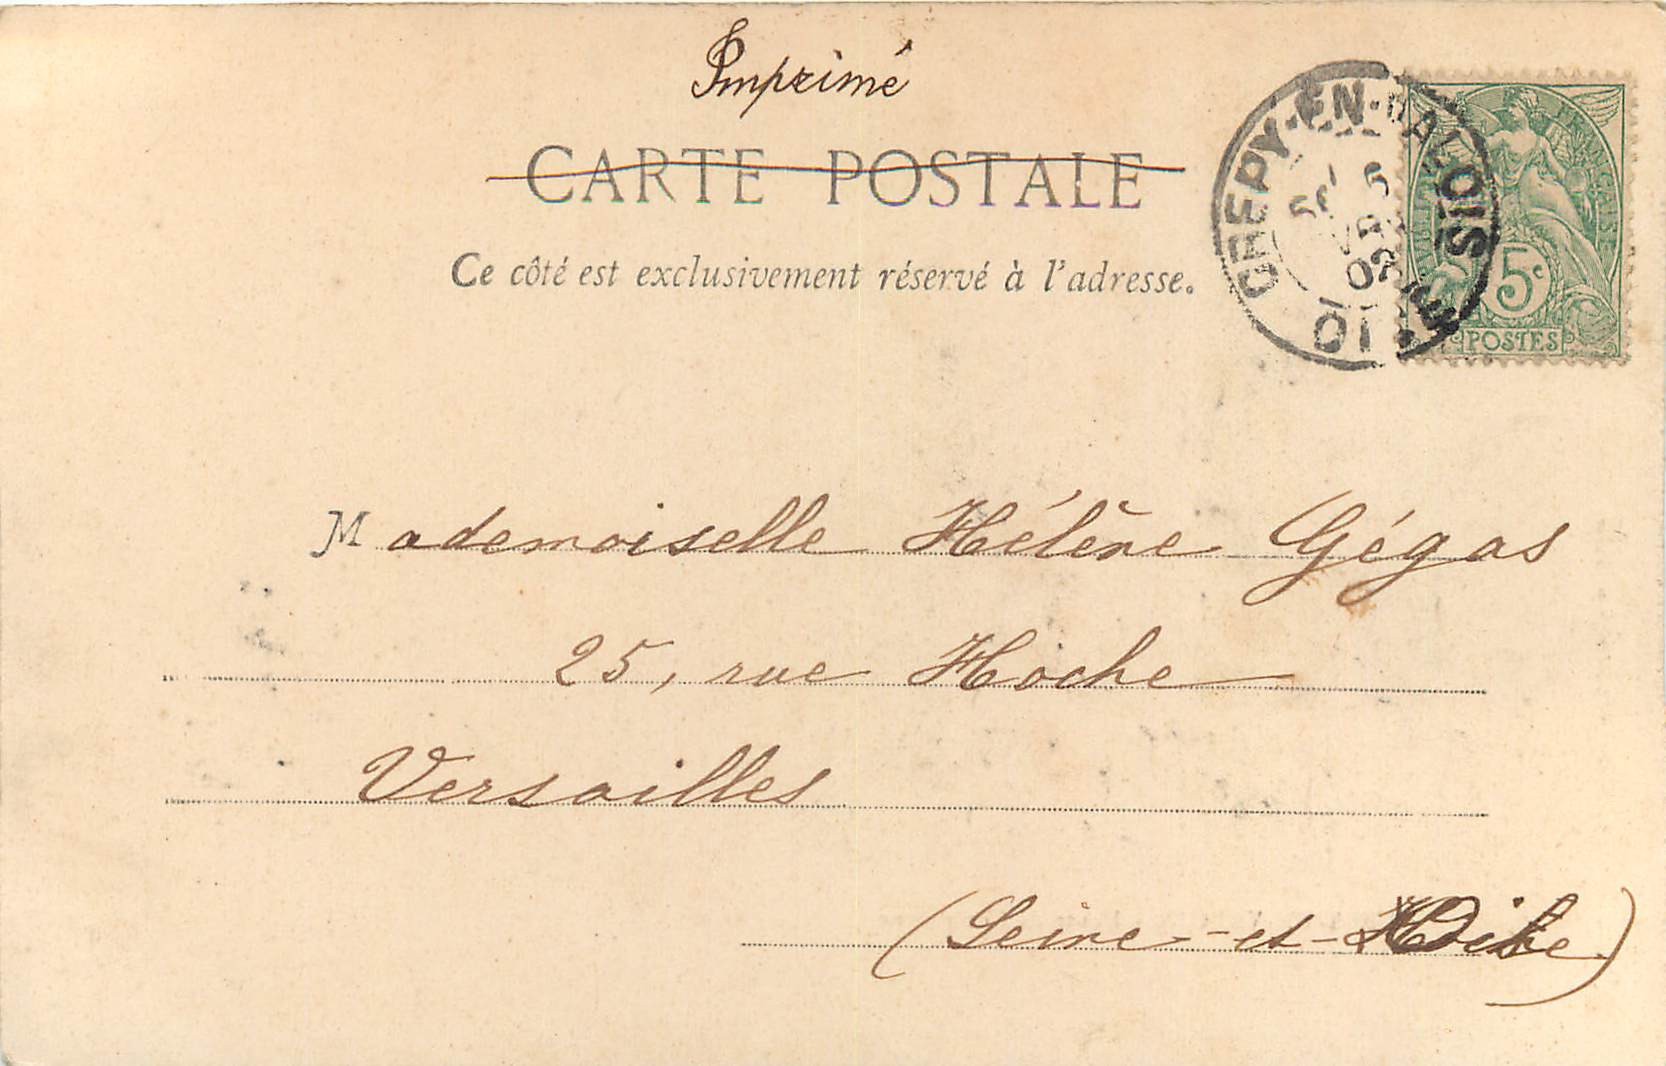 Imprimé
CARTE POSTALE
Ce côté est exclusivement réservé à l'adresse.
CREPY-EN-VALOIS
02
OISE
5c
POSTES
Mademoiselle Hélène Gégas
25, rue Hoche
Versailles
(Seine-et-Oise)